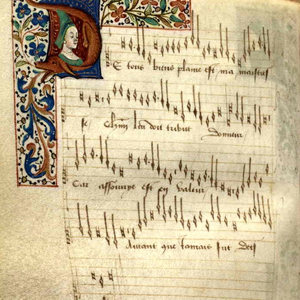 E tous biens plaine est ma maistress
se Chun lui doit tribut Donneur
Car assouvye est en valeur
Autant que Jamais fut Dees